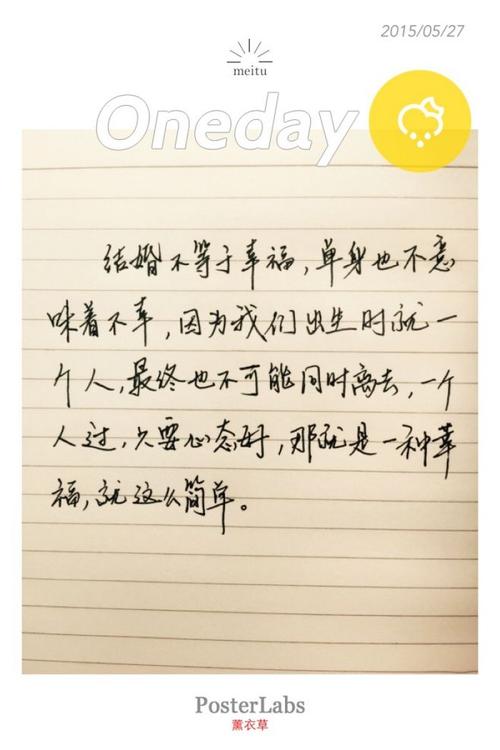 2015/05/27
meitu
Oneday
结婚不等于幸福,单身也不意
味着不幸,因为我们出生时就一
个人,最终也不可能同时离去,一个
人过,只要心态好,那就是一种幸
福,就这么简单。
PosterLabs
薰衣草